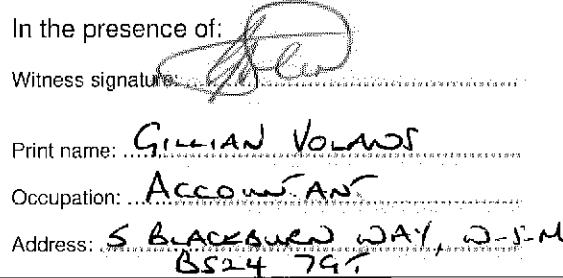 In the presence of:
Witness signature:
Print name: GILLIAN VOLANS
Occupation: ACCOUNTANT
Address: 5 BLACKBURN WAY, W-S-M
BS24 7GT